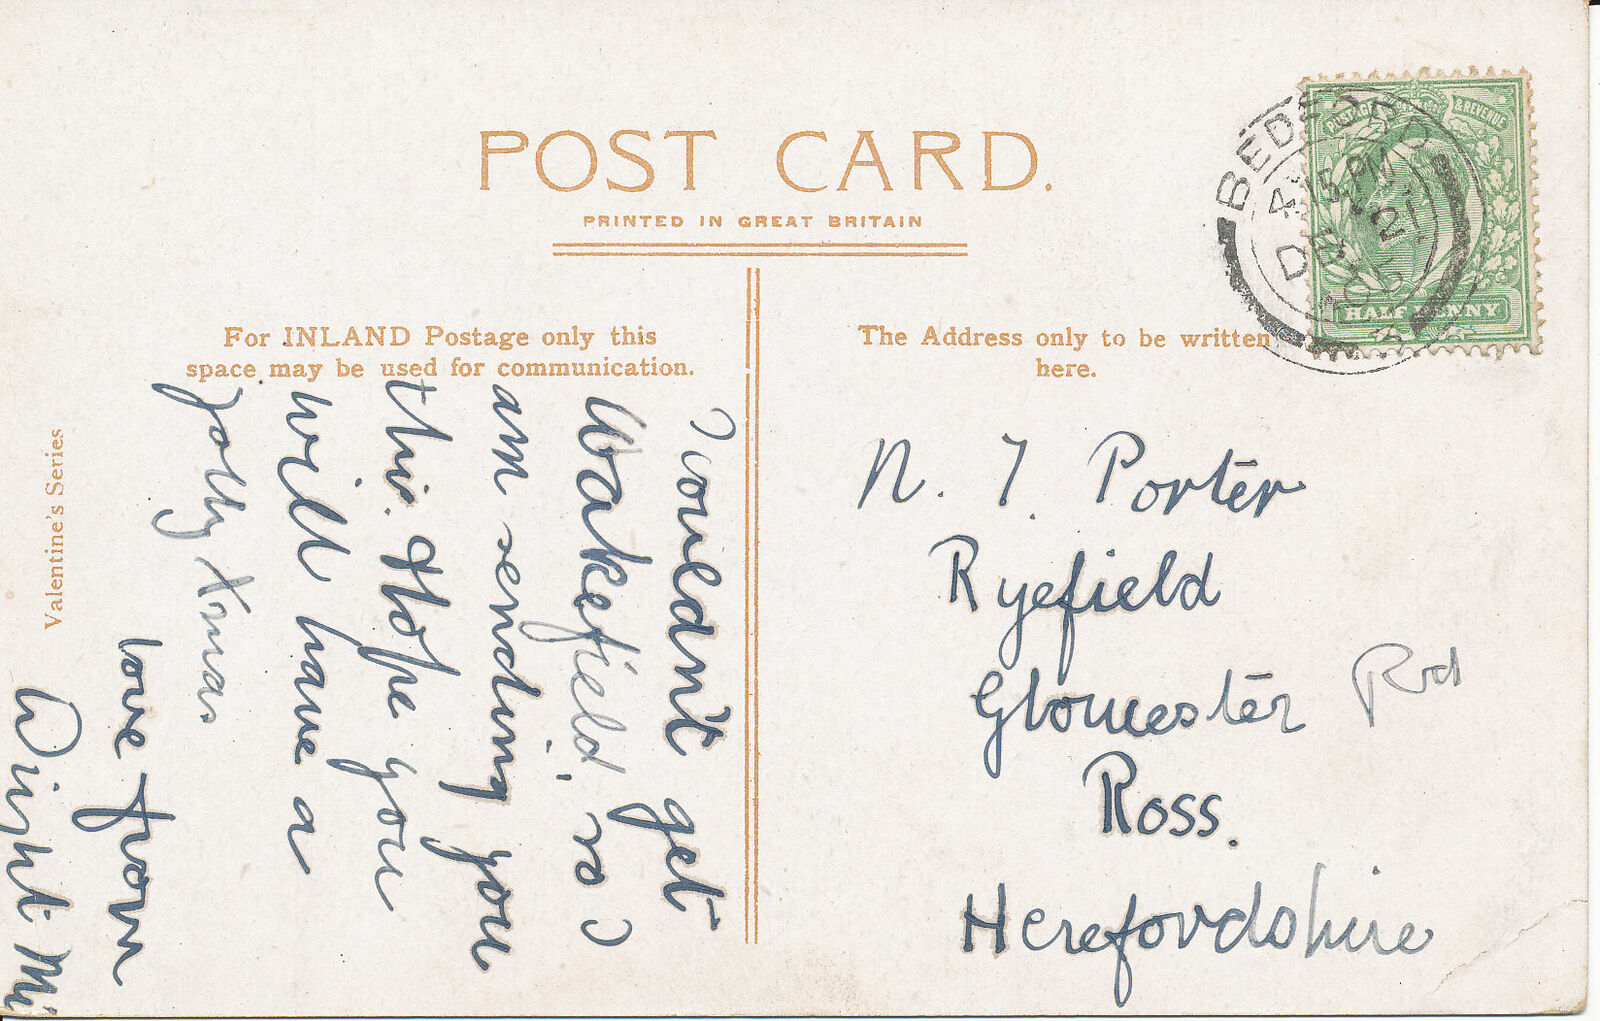 POST CARD.
PRINTED IN GREAT BRITAIN
For INLAND Postage only this
space may be used for communication.
The Address only to be written
here.
Valentine's Series
POSTAGE & REVENUE
HALFPENNY
BEDFORD
4.15 PM
DE 21
I couldn't get
Wakefield, so I
am sending you
this. Hope you
will have a
jolly Xmas
love from
N. J. Porter
Ryefield
Gloucester Rd
Ross.
Herefordshire